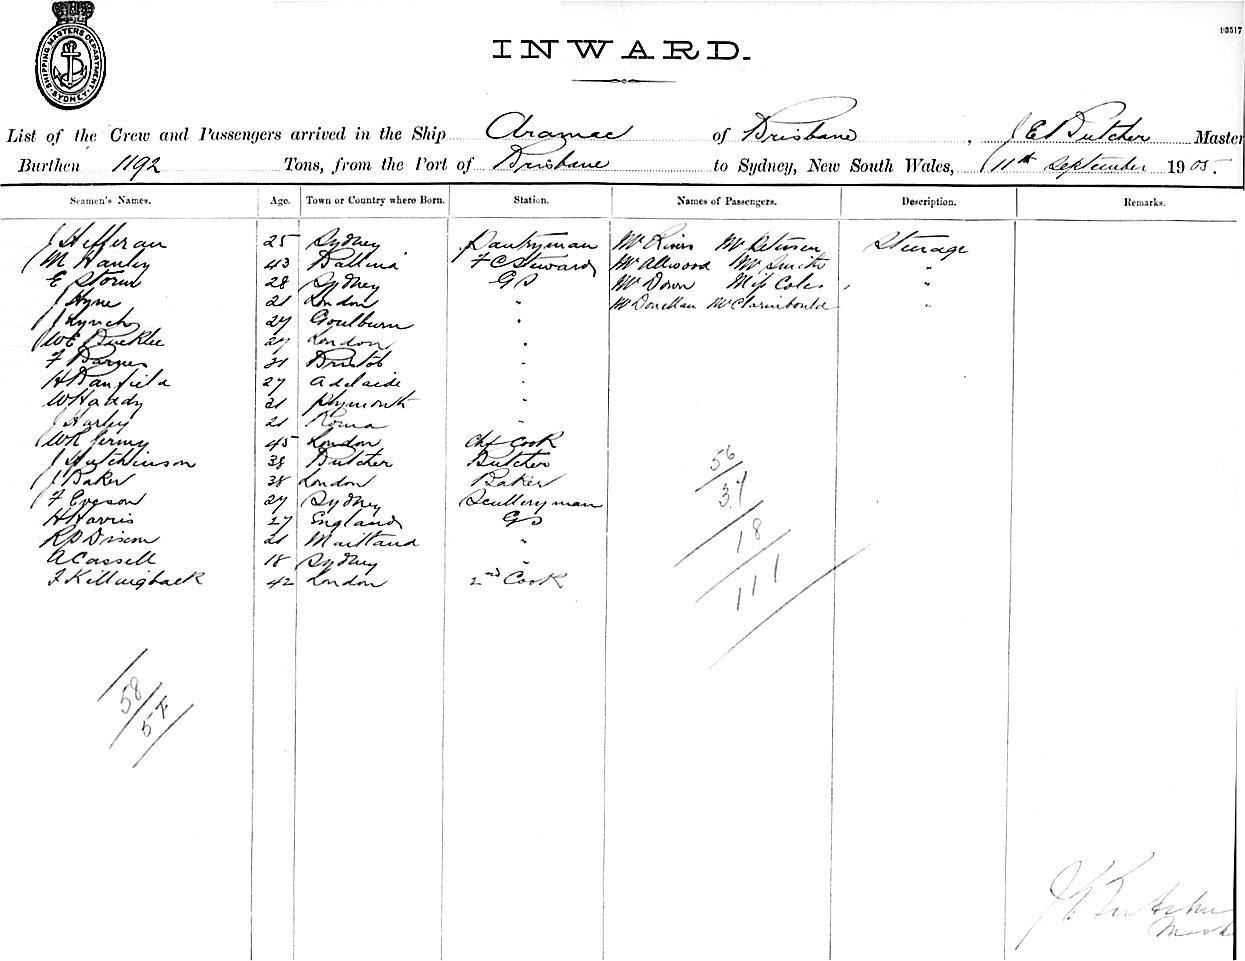 SHIPPING MASTERS DEPARTMENT SYDNEY
INWARD.
List of the Crew and Passengers arrived in the Ship Aramac of Brisbane, J E Butcher Master
Burthen 1192 Tons, from the Port of Brisbane to Sydney, New South Wales, 11th September 1905.
Seamen's Names. Age. Town or Country where Born. Station. Names of Passengers. Description. Remarks.
J Hefferan 25 Sydney Pantryman Mr Mr Petersen Steerage
M Hanley 43 Ballina F C Steward Mr Allwood Mr Smith "
E Storm 28 Sydney GS Mr Down Miss Coles "
J Hyne 21 London " Mr Donellan Mr "
J Lynch 27 Goulburn "
WE Bucklee 27 London "
F Barnes 31 Bristol "
H Banfield 27 Adelaide "
W Hardy 21 Plymouth "
J Harley 21 Roma "
WR Jermy 45 London Chf Cook
J Hutchinson 38 Butcher Butcher
J Baker 38 London Baker
F Eveson 27 Sydney Scullery man
H Harris 27 England GS
RP Dixon 21 Maitland "
A Cassell 18 Sydney "
F Killingback 42 London 2nd Cook
56
37
18
111
58
54
J E Butcher